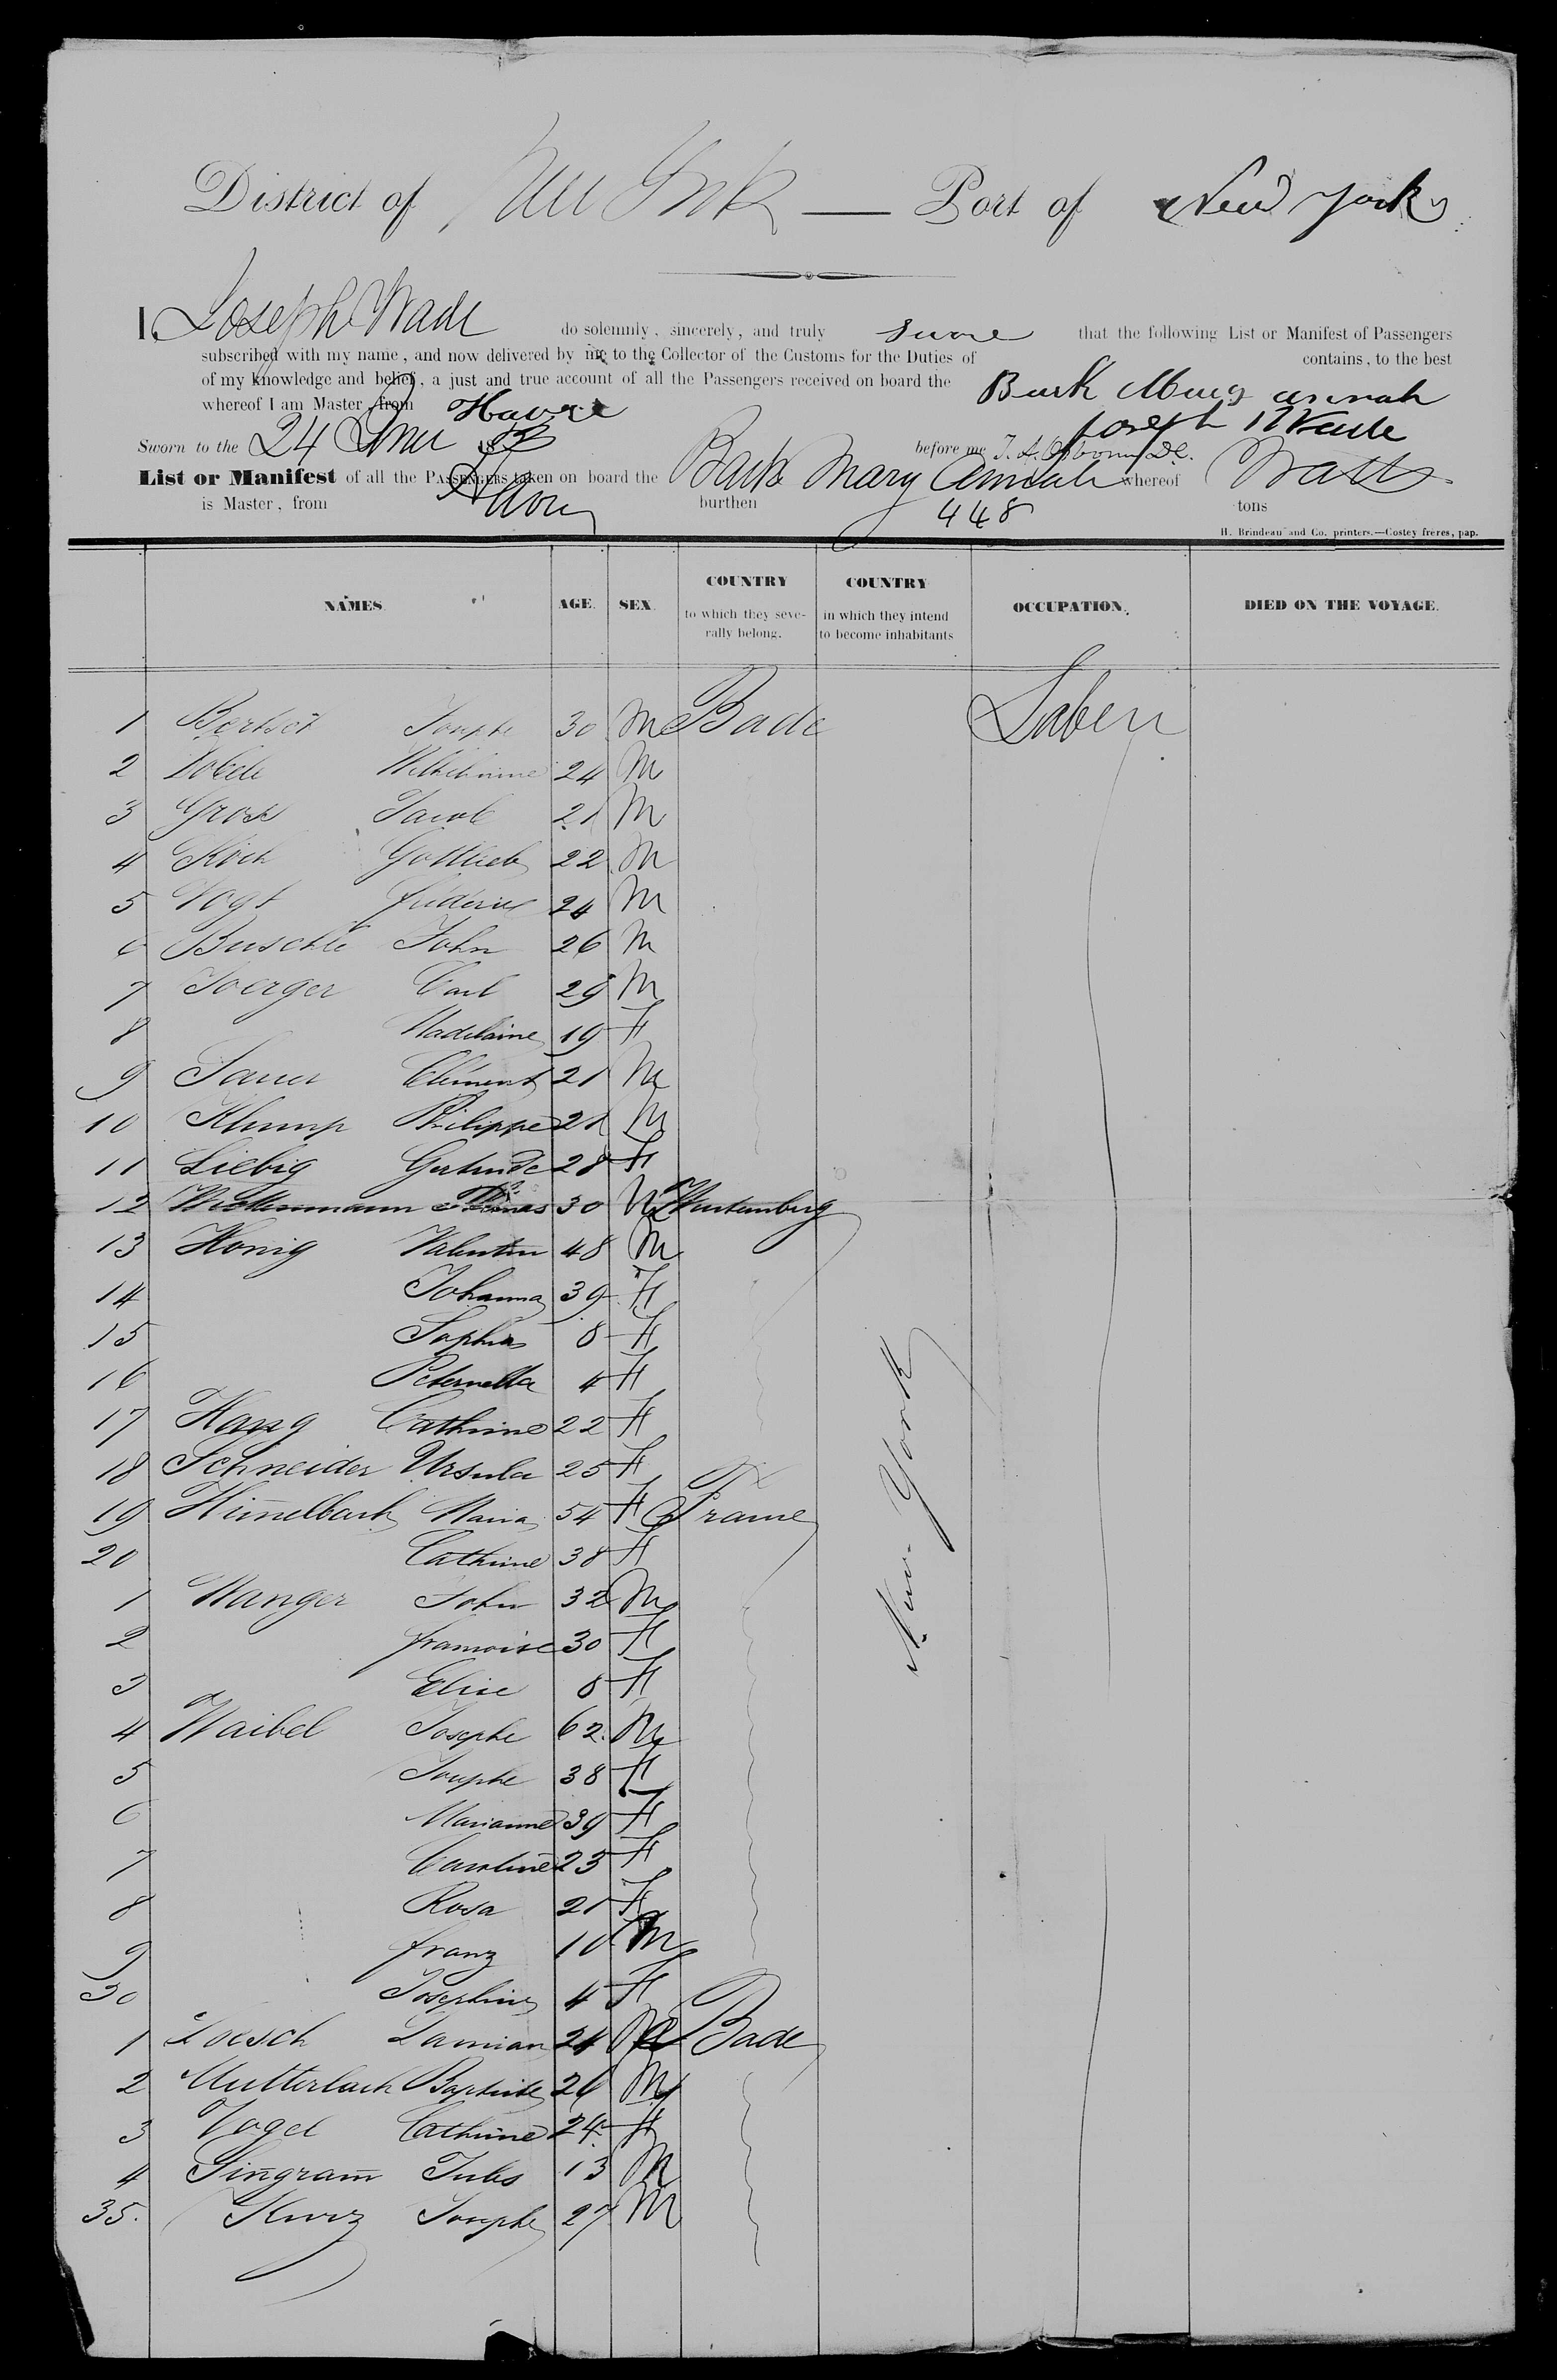 District of New York — Port of New York
I, Joseph Wade do solemnly, sincerely, and truly swore that the following List or Manifest of Passengers
subscribed with my name, and now delivered by me to the Collector of the Customs for the Duties of contains, to the best
of my knowledge and belief, a just and true account of all the Passengers received on board the Bark Mary Annah
whereof I am Master, from Havre Joseph Wade
Sworn to the 24 18 before me
List or Manifest of all the PASSENGERS taken on board the Bark Mary Annah whereof
is Master, from Havre burthen 448 tons
H. Brindeau and Co. printers.—Costey frères, pap.
NAMES. AGE. SEX. COUNTRY to which they severally belong. COUNTRY in which they intend to become inhabitants OCCUPATION. DIED ON THE VOYAGE.
1 Josephe 30 M Bade
2 24 M
3 Gross Jacob 21 M
4 Koch Gottlieb 22 M
5 Vogt frederic 24 M
6 Buschle John 26 M
7 Joerger Carl 29 M
8 Madelaine 19 F
9 Sauer Clement 21 M
10 Klump Philippe 21 M
11 Liebig Gertrude 28 F
12 Thomas 30 M Wurtemberg
13 Konig Valentin 48 M
14 Johanna 39 F
15 Sophia 8 F
16 Peternella 4 F
17 Cathrine 22 F
18 Schneider Ursula 25 F
19 Him̄elbach Maria 54 F France
20 Cathrine 38 F
1 Wanger John 32 M
2 francoise 30 F
3 Elise 8 F
4 Waibel Josephe 62 M
5 Josephe 38 F
6 Marianne 39 F
7 Caroline 23 F
8 Rosa 21 F
9 franz 10 M
30 Josephine 4 F
1 Loesch Damian 24 M Bade
2 Mutterlach Baptiste 26 M
3 Vogel Cathrine 24 F
4 Sin̄gram̄ Jules 13 M
35. Kurz Josephe 27 M
New York